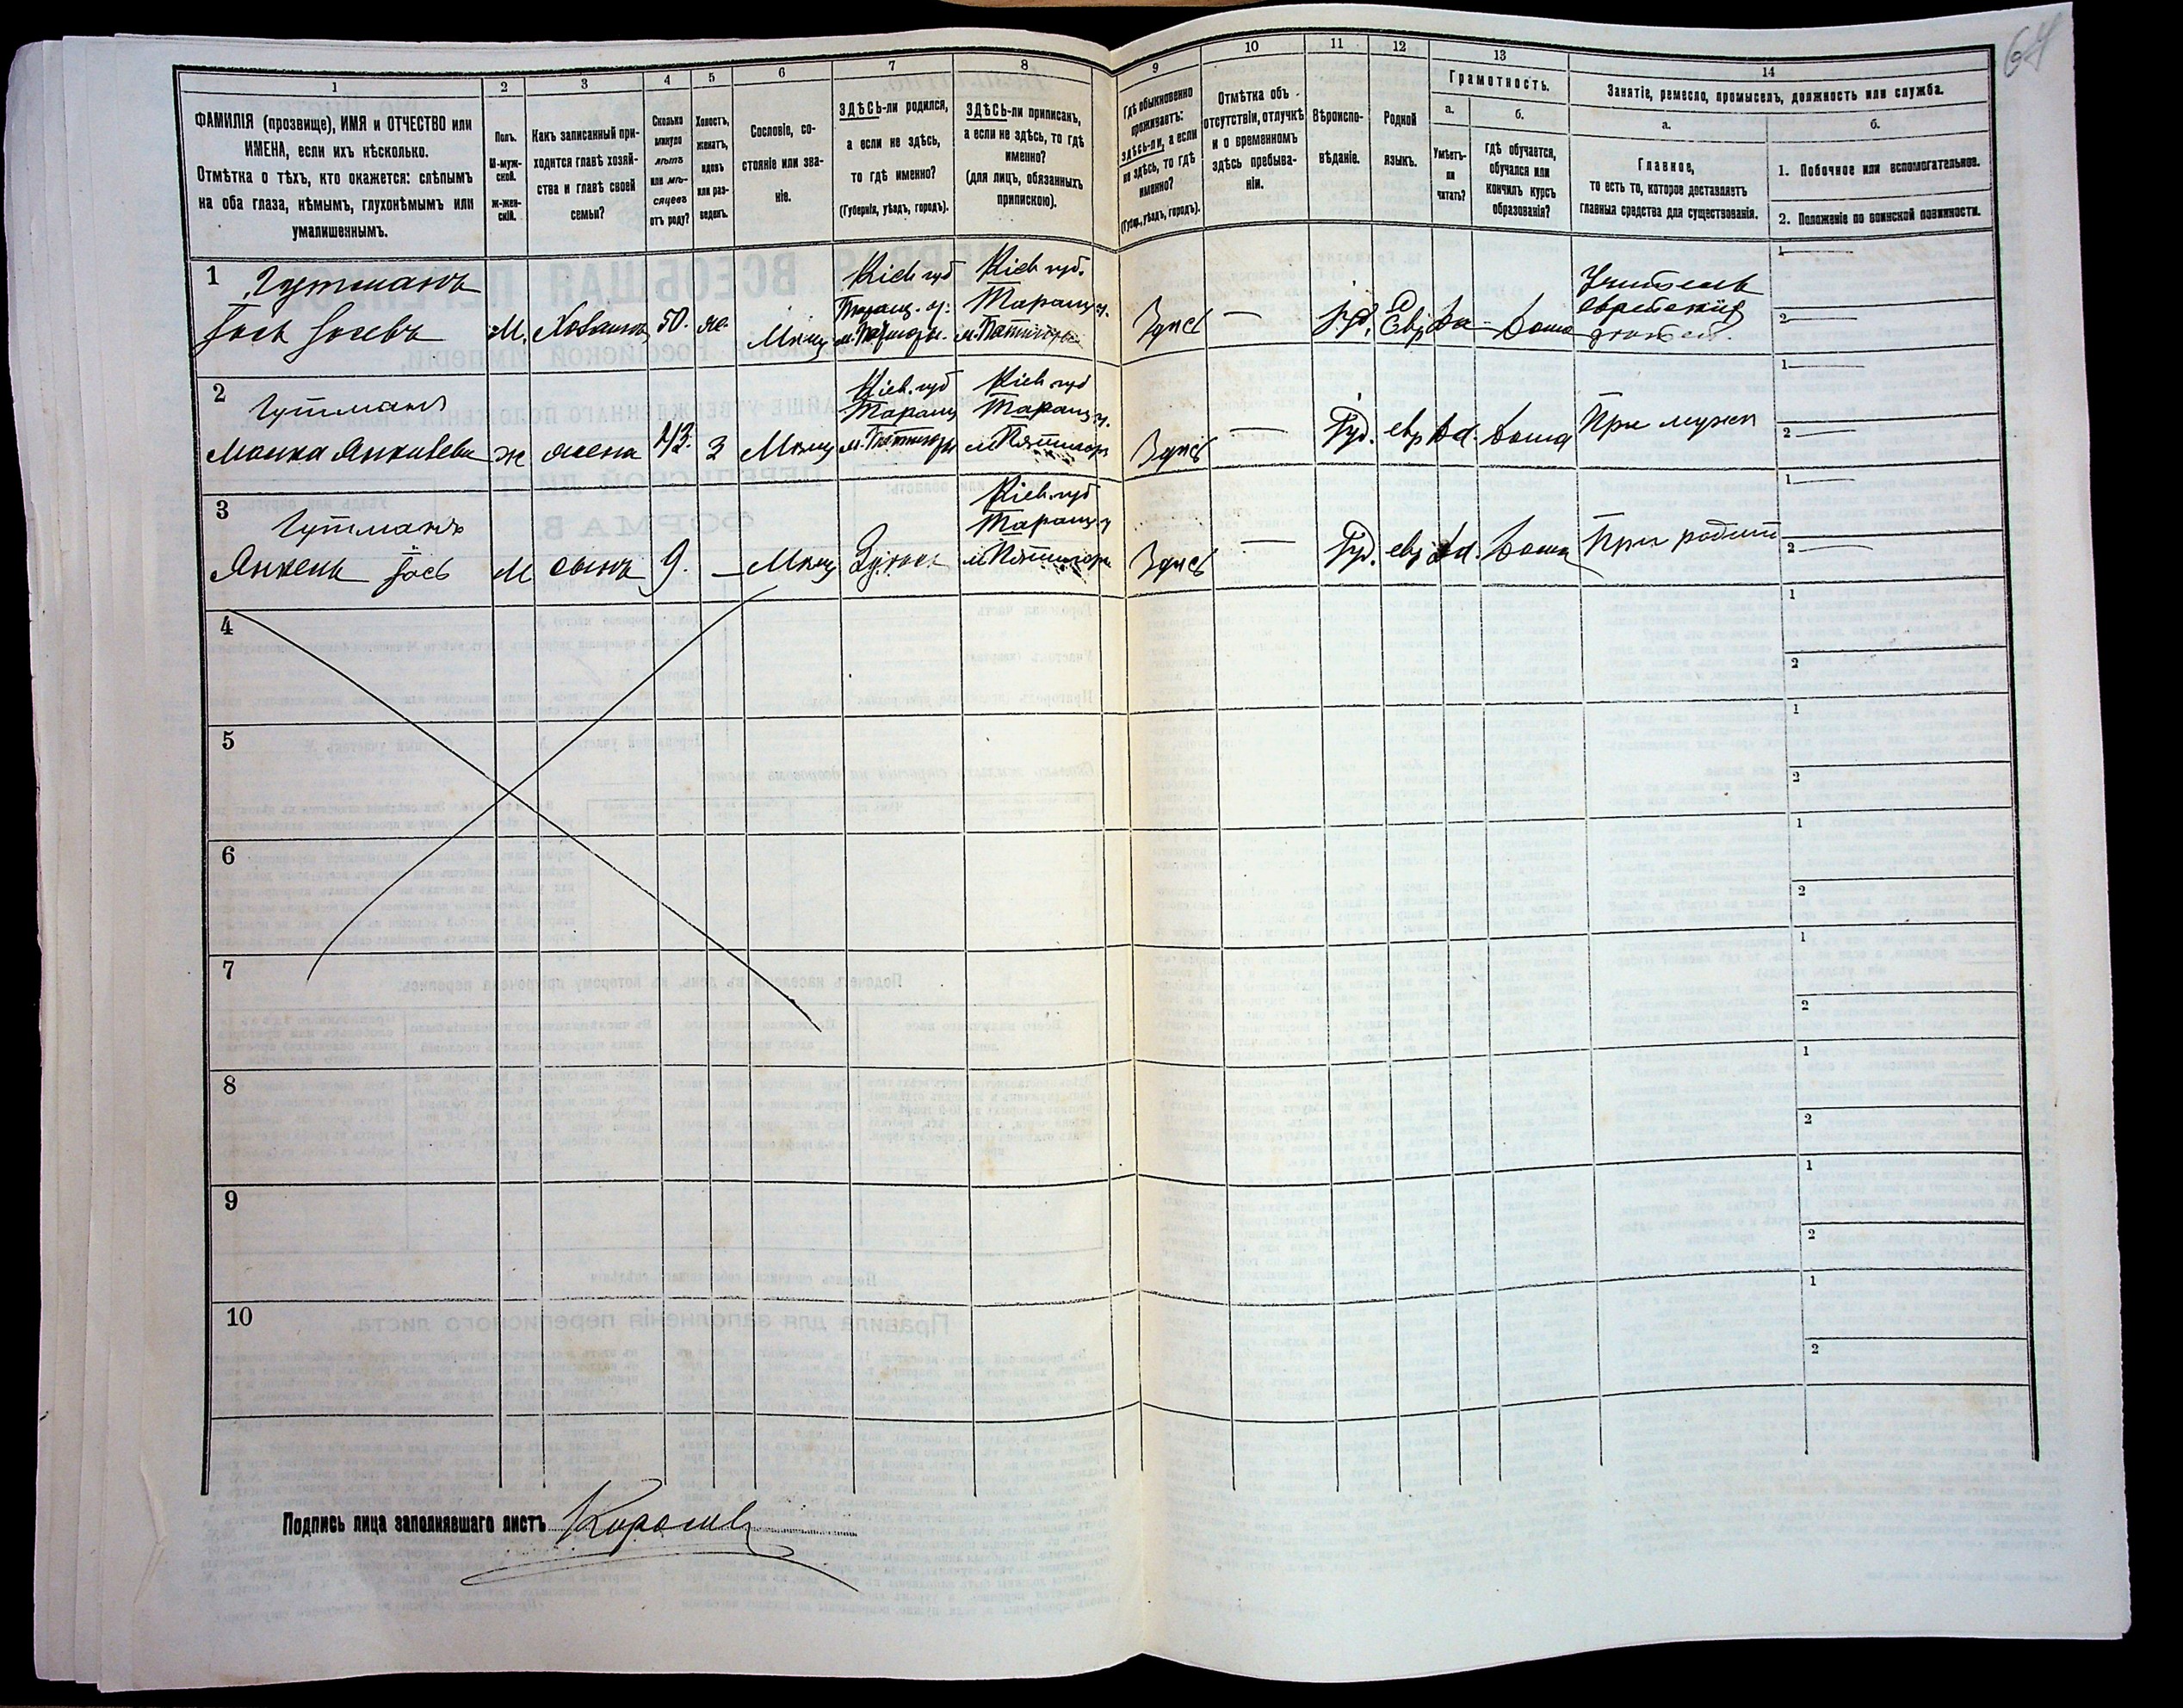 64
1
2
3
4
5
6
7
8
9
10
11
12
13
14
ФАМИЛІЯ (прозвище), ИМЯ и ОТЧЕСТВО или
ИМЕНА, если ихъ нѣсколько.
Отмѣтка о тѣхъ, кто окажется: слѣпымъ
на оба глаза, нѣмымъ, глухонѣмымъ или
умалишеннымъ.
Полъ.
М-муж-
ской.
Ж-жен-
скій.
Какъ записанный при-
ходится главѣ хозяй-
ства и главѣ своей
семьи?
Сколько
минуло
лѣтъ
или мѣ-
сяцевъ
отъ роду?
Холостъ,
женатъ,
вдовъ
или раз-
веденъ.
Сословіе, со-
стояніе или зва-
ніе.
ЗДѢСЬ-ли родился,
а если не здѣсь,
то гдѣ именно?
(Губернія, уѣздъ, городъ).
ЗДѢСЬ-ли приписанъ,
а если не здѣсь, то гдѣ
именно?
(для лицъ, обязанныхъ
припискою).
Гдѣ обыкновенно
проживаетъ:
здѣсь-ли, а если
не здѣсь, то гдѣ
именно?
(Губер., уѣздъ, городъ).
Отмѣтка объ
отсутствіи, отлучкѣ
и о временномъ
здѣсь пребыва-
ніи.
Вѣроиспо-
вѣданіе.
Родной
языкъ.
Грамотность.
а.
Умѣетъ-
ли
читать?
б.
гдѣ обучается,
обучался или
кончилъ курсъ
образованія?
Занятіе, ремесло, промыселъ, должность или служба.
а.
Главное,
то есть то, которое доставляетъ
главныя средства для существованія.
б.
1. Побочное или вспомогательное.
2. Положеніе по воинской повинности.
1
Гутманъ
Іось Іосевъ
М.
Хозяинъ
50.
же.
Мѣщ
Кіев губ
Таращ. у.
м. Пятигоры.
Кіев губ.
Таращ у.
м. Пятигоры
Здѣсь
—
Іуд.
Евр
Да
Дома
Учитель
еврейскихъ
дѣтей.
1 —
2 —
2
Гутманъ
Янкивева
ж
жена
43.
З
Мѣщ
Кіев. губ
Таращ
м. Пятигоры
Кіев губ
Таращ у.
м Пятигор
Здѣсь
—
Іуд.
евр
Да.
Дома
При мужѣ
1 —
2 —
3
Гутманъ
Янкель Іось
М
сынъ
9.
—
Мѣщ
Здѣсь
Кіев. губ
Таращ у
м Пятигоры
Здѣсь
—
Іуд.
евр
Да.
Дома
При родит
1 —
2 —
4
1
2
5
1
2
6
1
2
7
1
2
8
1
2
9
1
2
10
1
2
Подпись лица заполнявшаго листъ